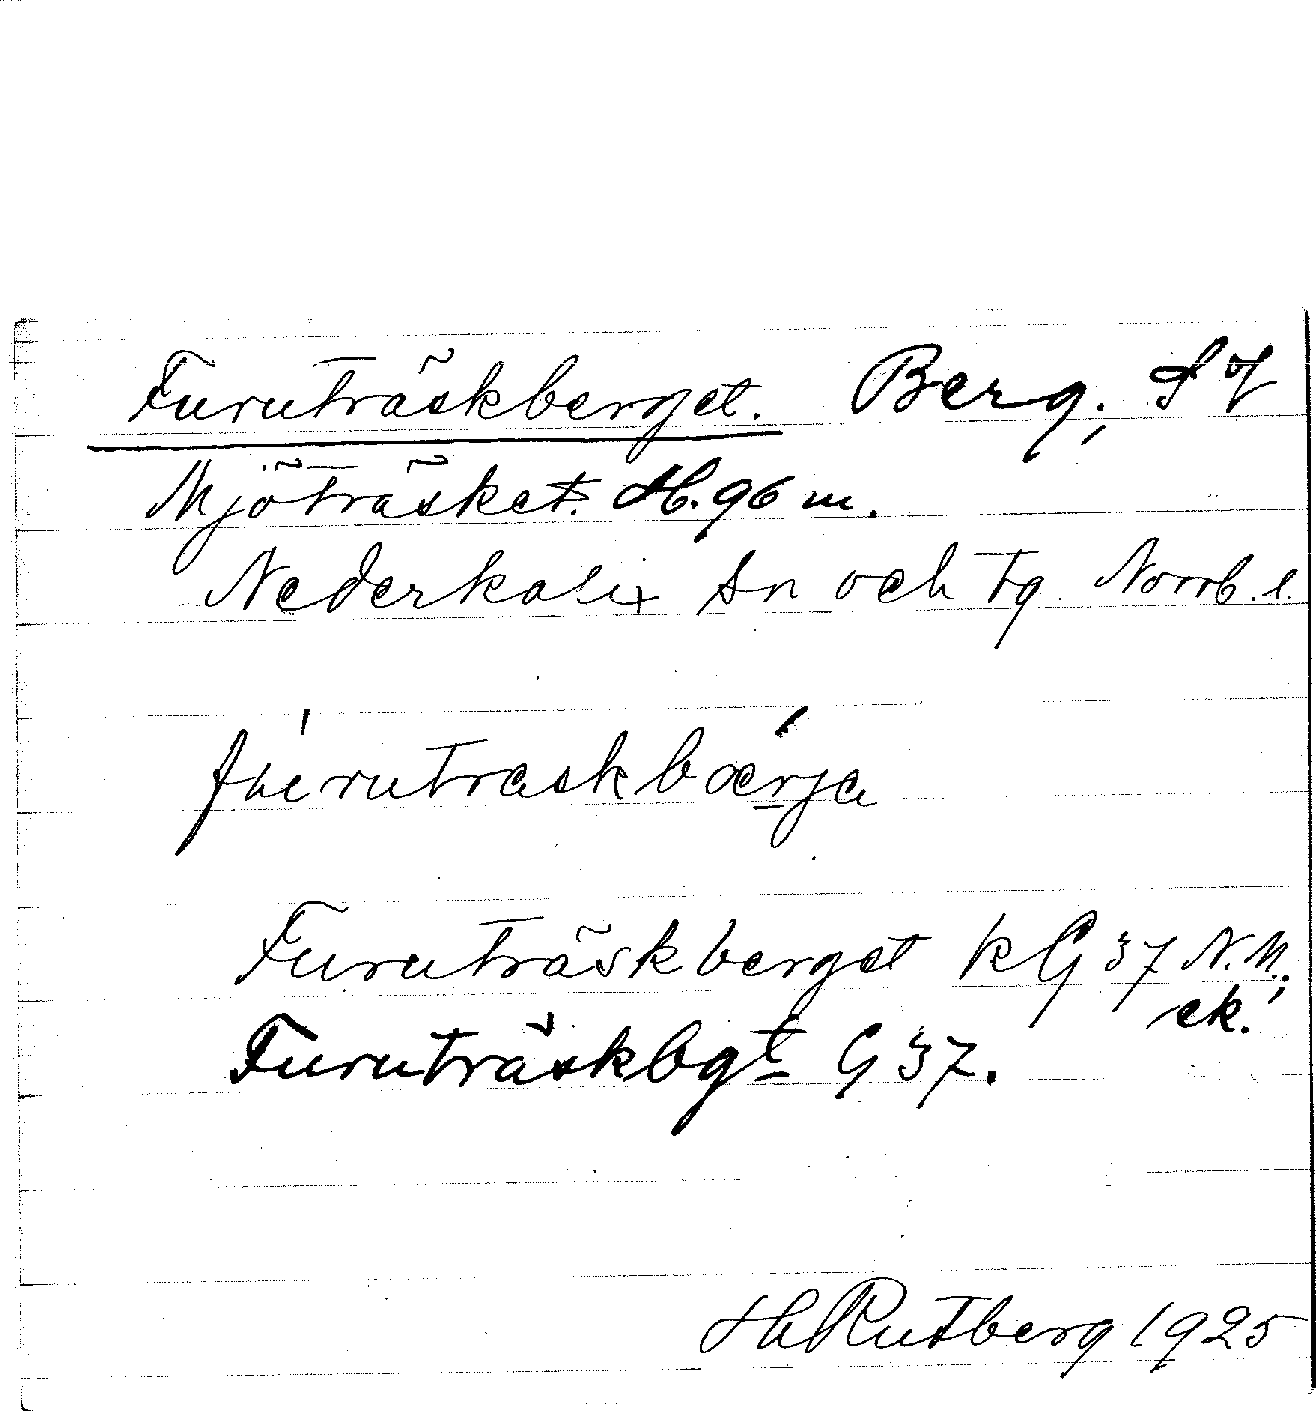 Furuträskberget. Berg, S of
Mjöträsket. H. 96 m.
Nederkalix sn och tg Norrb. l.
fúrutraskbærja
Furuträskberget kG 37 N.M.;
ek.
Furuträskbgt G 37.
H Rutberg 1925